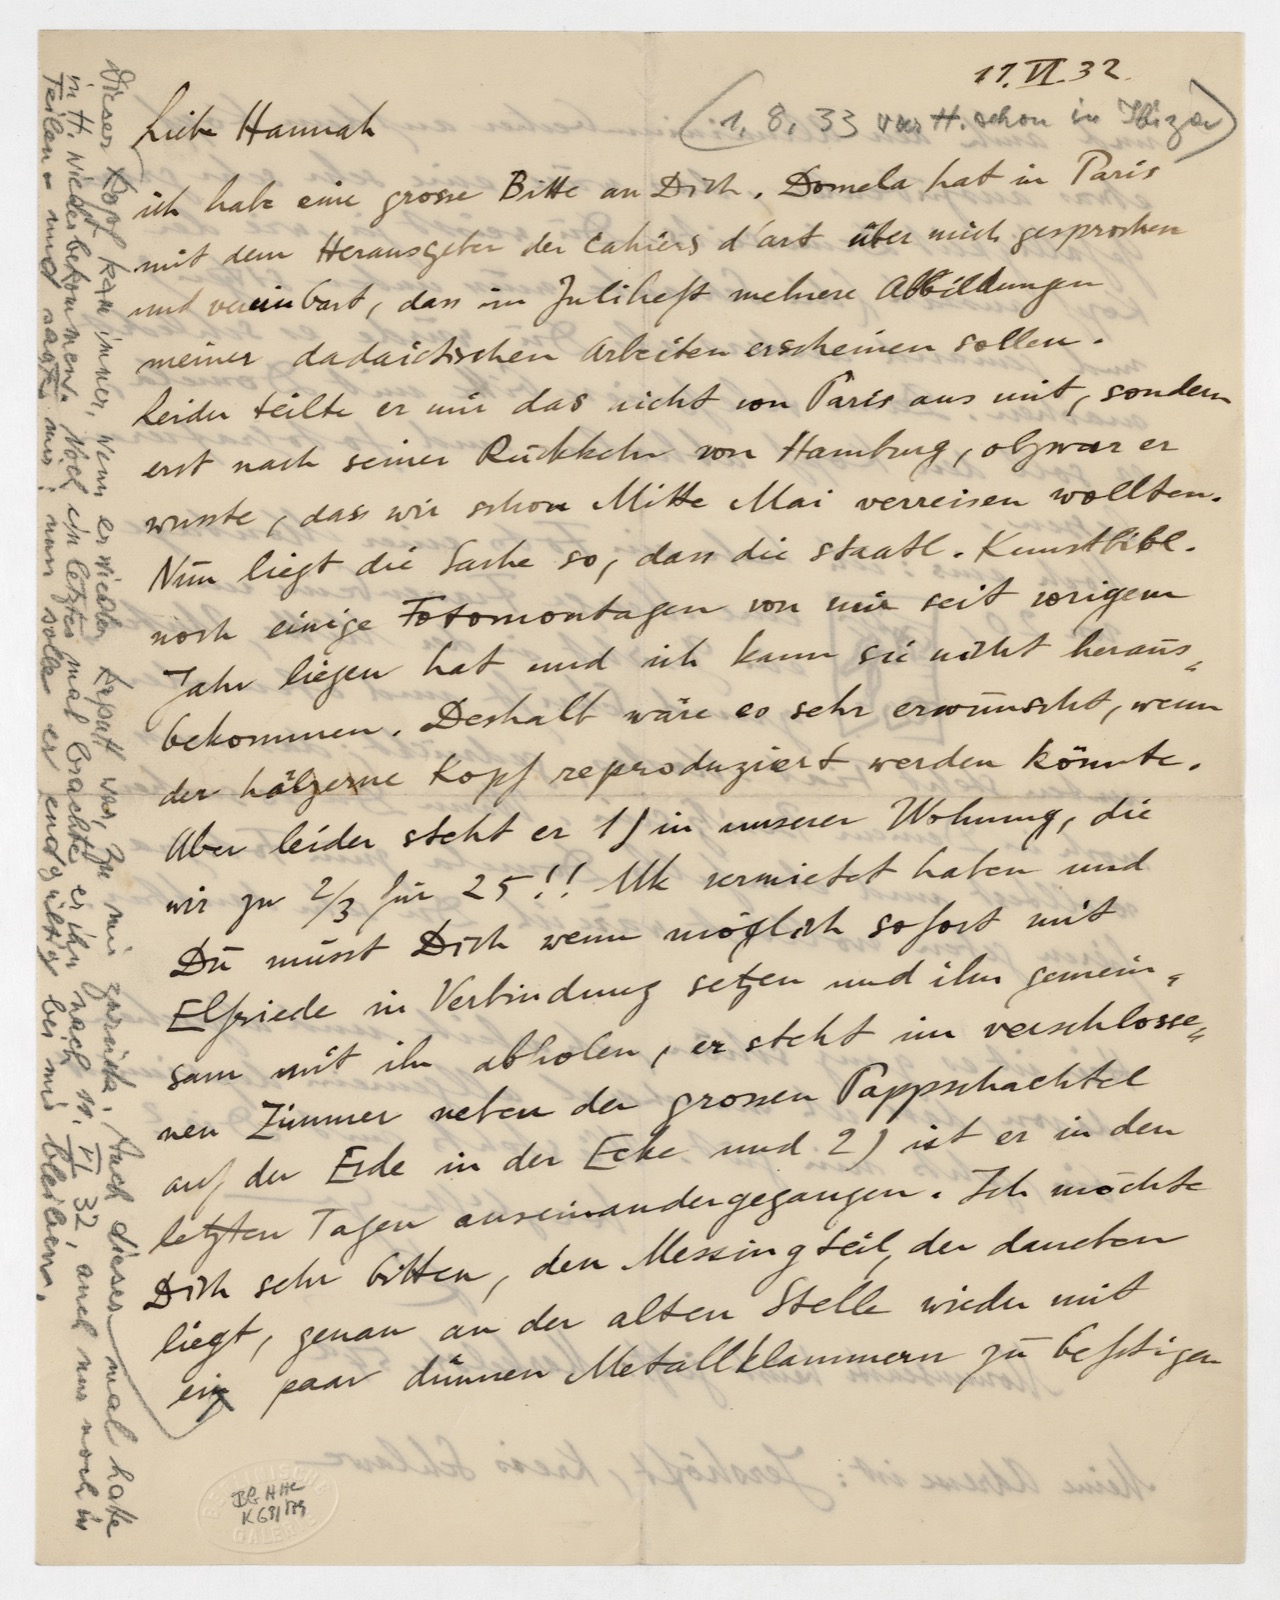 11.VI.32.
(1, 8, 33 war H. schon in Ibiza)
Liebe Hannah
ich habe eine grosse Bitte an Dich. Domela hat in Paris
mit dem Herausgeber der Cahiers d'art über mich gesprochen
und vereinbart, dass im Juliheft mehrere Abbildungen
meiner dadaistischen Arbeiten erscheinen sollen.
Leider teilte er mir das nicht von Paris aus mit, sondern
erst nach seiner Rückkehr von Hamburg, obzwar er
wusste, dass wir schon Mitte Mai verreisen wollten.
Nun liegt die Sache so, dass die staatl. Kunstbibl.
noch einige Fotomontagen von mir seit vorigem
Jahr liegen hat und ich kann sie nicht heraus-
bekommen. Deshalb wäre es sehr erwünscht, wenn
der hölzerne Kopf reproduziert werden könnte.
Aber leider steht er 1) in unserer Wohnung, die
wir zu 2/3 für 25!! Mk vermietet haben und
Du müsst Dich wenn möglich sofort mit
Elfriede in Verbindung setzen und ihn gemein-
sam mit ihr abholen, er steht im verschlosse-
nen Zimmer neben der grossen Pappschachtel
auf der Erde in der Ecke und 2) ist er in den
letzten Tagen auseinandergegangen. Ich möchte
Dich sehr bitten, den Messingteil, der daneben
liegt, genau an der alten Stelle wieder mit
ein paar dünnen Metallklammern zu befstigen
Dieser Kopf kam immer, wenn er wieder kaputt war, zu mir zurück. Auch dieses mal hatte
in H. wiederbekommen. Noch ein letztes mal brachte er ihn nach 11. VI 32, auch nur noch in
Teilen und sagte mir, nun solle er endgültig bei mir bleiben.
BERLINISCHE
GALERIE
BG HHC
K 631/79